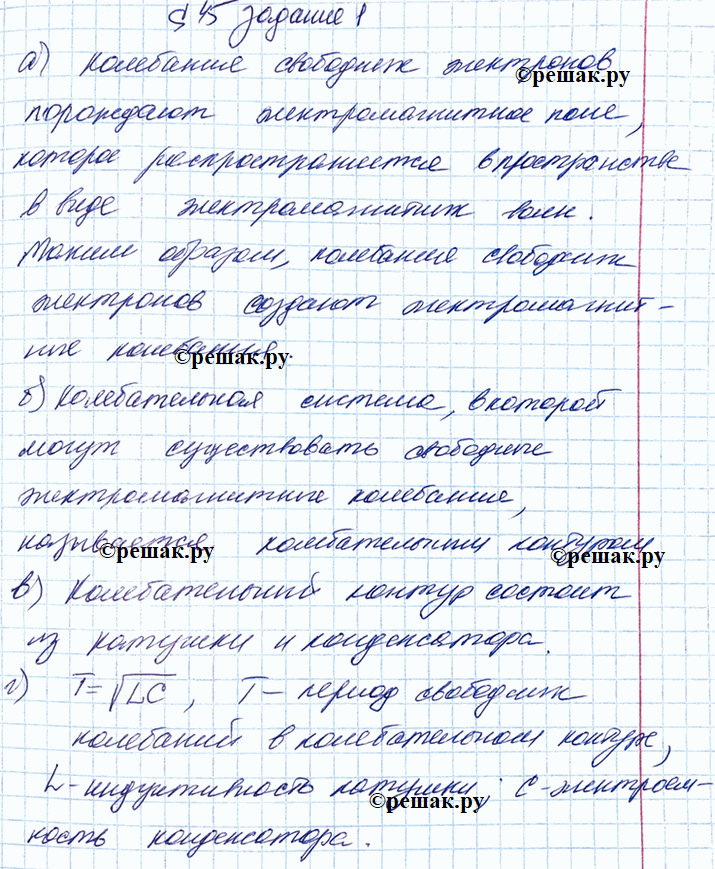 § 45 Задание 1
а) Колебания свободных электронов
порождают электромагнитное поле,
которое распространяется в пространстве
в виде электромагнитных волн.
Таким образом, колебания свободных
электронов создают электромагнит-
ные колебания.
б) Колебательная система, в которой
могут существовать свободные
электромагнитные колебания,
называется колебательным контуром
в) Колебательный контур состоит
из катушки и конденсатора.
г) T=√LC, T – период свободных
колебаний в колебательном контуре,
L – индуктивность катушки; C – электроем-
кость конденсатора.
©решак.ру
©решак.ру
©решак.ру
©решак.ру
©решак.ру